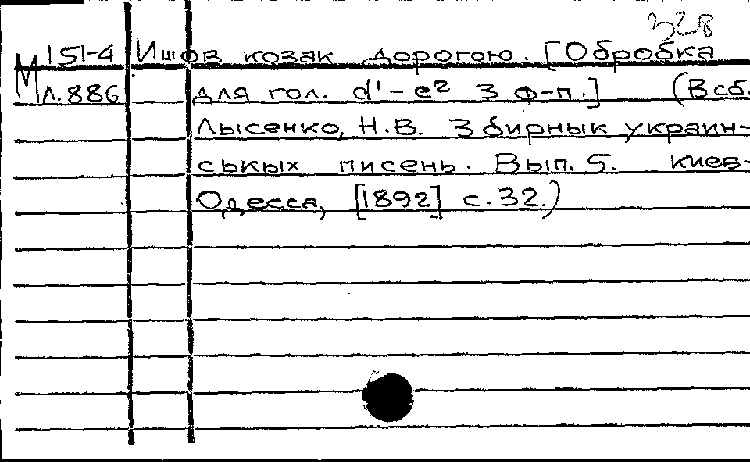 328
М 151-4 Ишов козак дорогою. [Обробка
Л.886 для гол. d'-e² з ф-п.] (В сб.
Лысенко, Н.В. Збирнык украин-
ськых писень. Вып. 5. Киев-
Одесса, [1892] с. 32.)